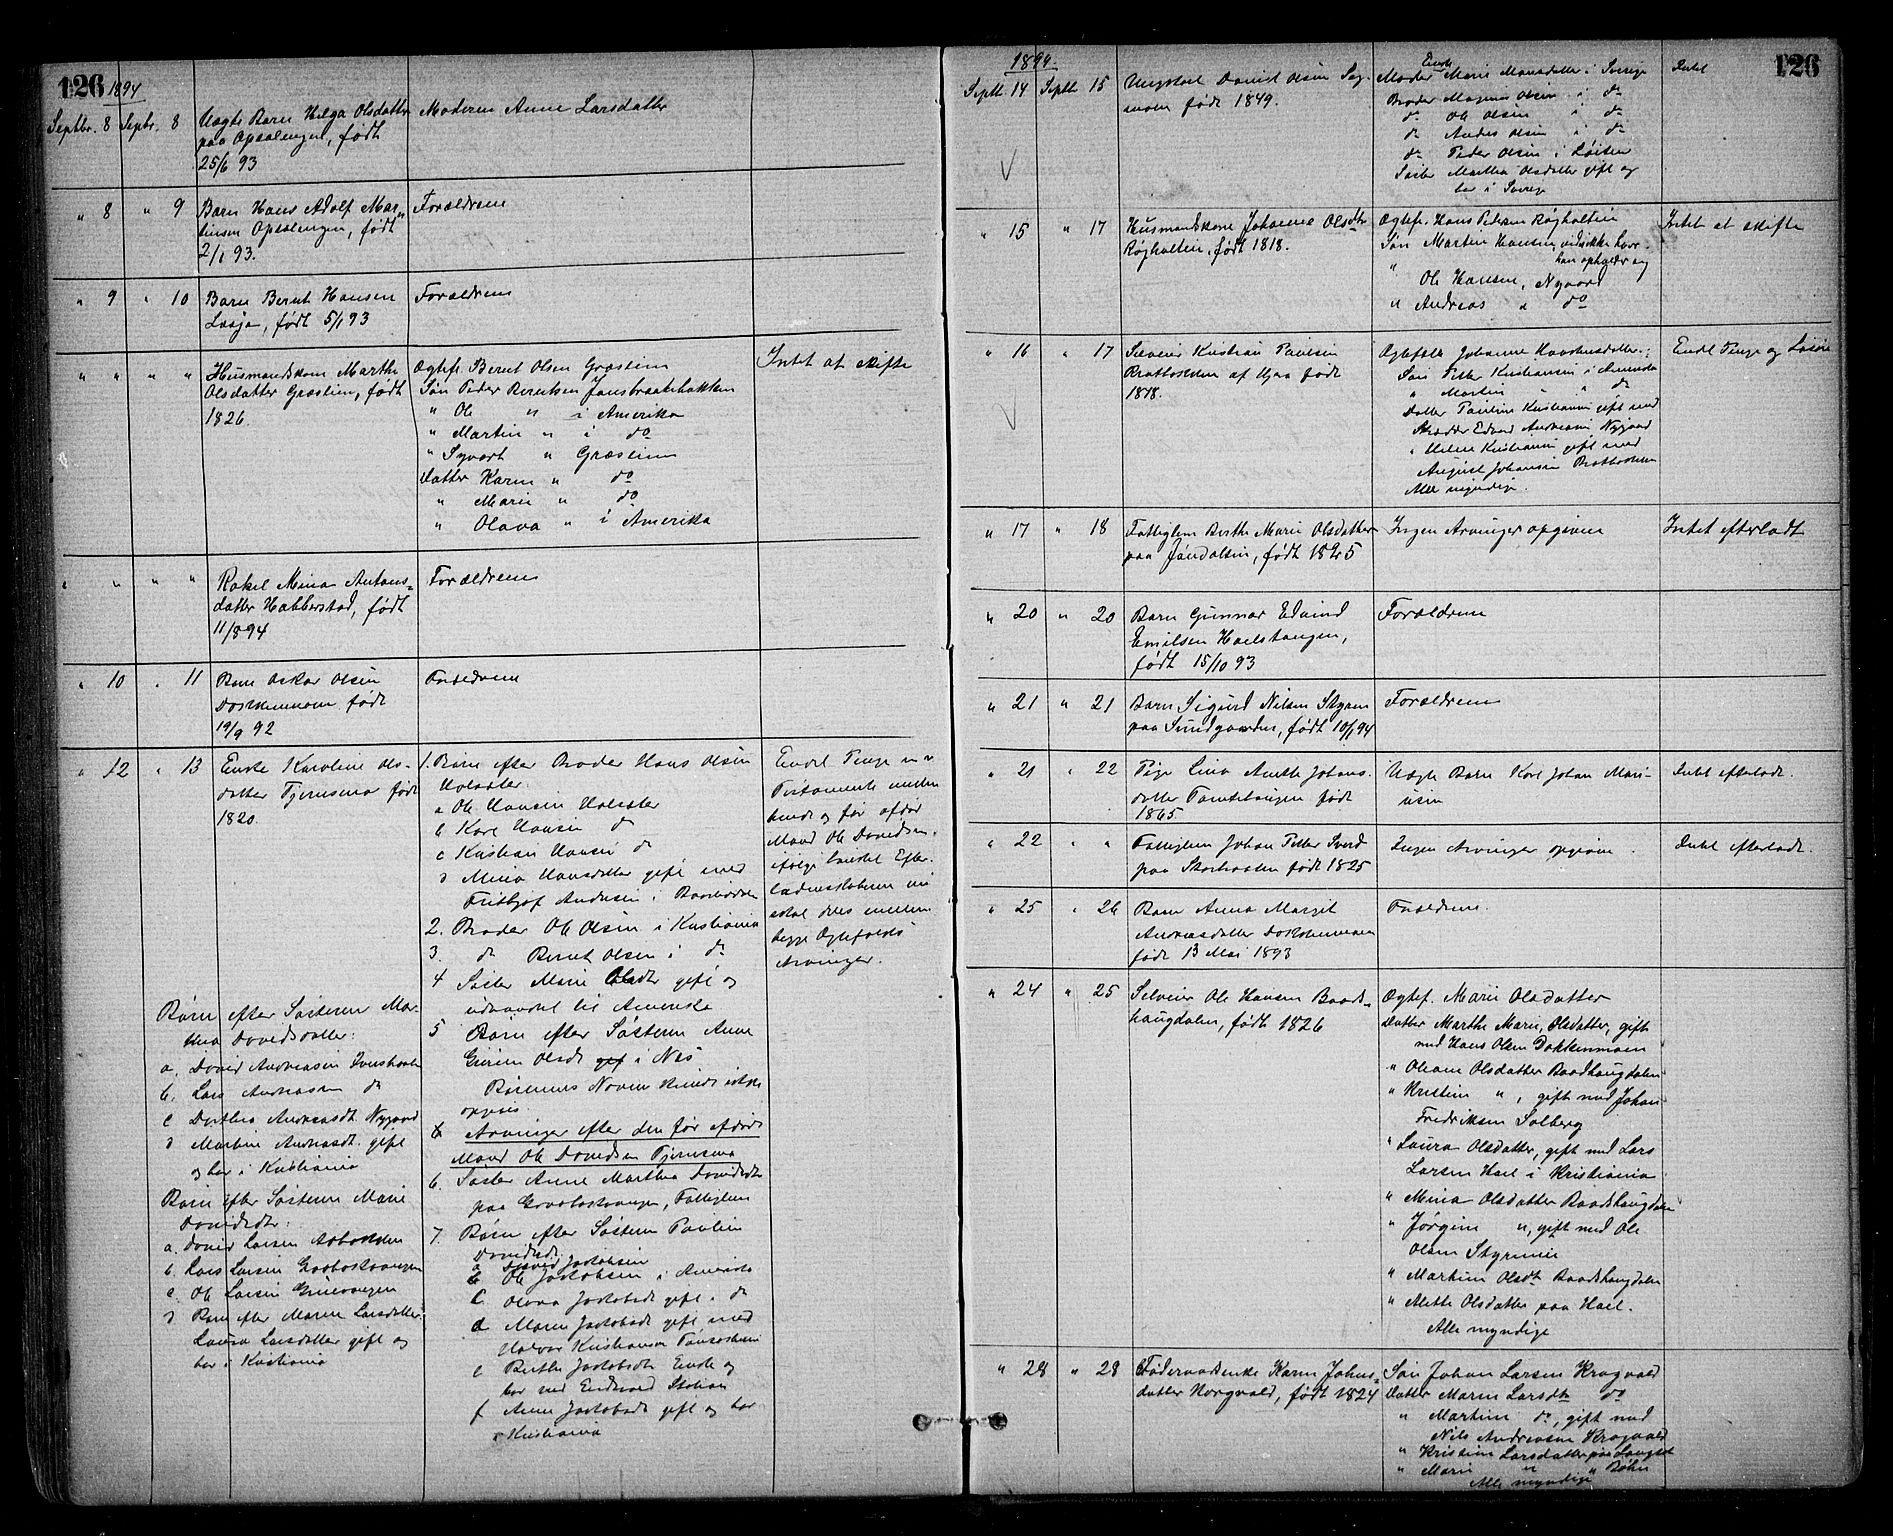 126
1894
Septbr. 8 Septbr. 8 Uægte Barn Helga Olsdatter
paa Opsalengen, født
25/6 93
Moderen Anne Larsdatter
" 8 " 9 Barn Hans Adolf Mar-
tinsen Opsalengen, født
2/1 93.
Forældrene
" 9 " 10 Barn Bernt Hansen
født 5/1 93
Forældrene
" " " " Husmandskone Marthe
Olsdatter Græstien, født
1826.
Ægtef. Bernt Olsen Græstien
Søn Peder Berntsen Jonsbraatebakken
" Ole " i Amerika
" Martin " i do
" Syvert " Græstien
Datter Karen " do
" Marie " do
" Olava " i Amerika
Intet at skifte
" " " " Rakel Mina Antons-
datter Habberstad, født
11/8 94
Forældrene
" 10 " 11 Barn Oskar Olsen
Dokkenmoen født
19/9 92
Forældrene
" 12 " 13 Enke Karoline Ols-
datter Tjernsmo født
1820.
1. Børn efter Broder Hans Olsen
Holsæter
a Ole Hansen Holsæter
b Karl Hansen do
c Kristian Hansen do
d Mina Hansdatter gift med
Fritjof Andersen i
2. Broder Ole Olsen i Kristiania
3. do Bernt Olsen i do
4 Søster Marie Olsdt gift og
udvandret til Amerika
5 Børn efter Søsteren Anne
Olsdt gift i Næs
Børnenes Navne kunde ikke
opgives.
Arvinger efter den før afdøde
Mand Ole Davidsen Tjernsmo
6. Søster Anne Marthea Davidsdt
paa Fattiglem
7. Børn efter Søsteren Pauline
Davidsdt
a David Jakobsen
b Ole Jakobsen i Amerika
c Olava Jakobsdt gift i do
d Maren Jakobsdt gift med
Halvor Kristiansen
e Berthe Jakobsdt Enke og
bor ved Eidsvold Station
f Anne Jakobsdt gift og bor
i Kristiania
Endel Penge
Testamente mellem
hende og før afdøde
Mand Ole Davidsen,
ifølge hvilket Efter-
ladenskaberne nu
skal deles mellem
begge Ægtefolds
Arvinger.
Børn efter Søsteren Mar-
thea Davidsdatter:
a. David Andreasen
b. Lars Andreasen do
c Dorthea Andreasdt Nygaard
d Marthe Andreasdt. gift
og bor i Kristiania
Børn efter Søsteren Marie
Davidsdtr:
a. David Larsen
b. Lars Larsen
c. Ole Larsen
d Børn efter Maren Larsdatter:
Laura Larsdatter gift og
bor i Kristiania
126
1894.
Septb. 14 Septb. 15 Ungkarl Daniel Olsen Sag-
moen født 1849.
Enke
Moder Marie Monsdatter i Sverige
Broder Magnus Olsen i do
do Ole Olsen i do
do Anders Olsen i do
do Peder Olsen i Løiten
Søster Martha Olsdatter gift og
bor i Sverige
Intet
" 15 " 17 Husmandskone Johanne Olsdtr
Røgholtin, født 1818.
Ægtef. Hans Pedersen Røgholtin
Søn Martin Hansen, vides ikke hvor
han opholder sig
" Ole Hansen, Nygaard
" Andreas " do
Intet at skifte
" 16 " 17 Selveier Kristian Paulsen
Bratbakken af Ujaa født
1818.
Ægtefælle Johanne Haavelsdatter.;
Søn Petter Kristiansen i Amerika
" Martin " " do
Datter Pauline Kristiansen gift med
Skrædder Edvard Andreasen Nygaard
" Helene Kristiansen gift med
August Johansen Bratbakken
Alle myndige.
Endl Penge og Løsøre
" 17 " 18 Fattiglem Berthe Marie Olsdatter
paa Jøndalsen, født 1825
Ingen Arvinger opgiven
Intet efterladt
" 20 " 20 Barn Gunnar Edvind
Emilsen Haelstangen,
født 15/10 93
Forældrene
" 21 " 21 Barn Sigurd Nilsen Styren
paa Sundgaarden, født 10/1 94
Forældrene
" 21 " 22 Pige Lina Anette Johans-
datter Tomtetangen født
1865
Uægte Barn Karl Johan Mari-
usen
Intet efterladt.
" 22 " " Fattiglem Johan Petter Sverd
paa født 1825
Ingen Arvinger opgiven.
Intet efterladt.
" 25 " 26 Barn Anna Margit
Andreasdatter Dokkenmoen
født 13 Mai 1893
Forældrene.
" 24 " 25 Selveier Ole Hansen Baads-
haugdalen, født 1826
Ægtef. Marie Olsdatter
Datter Marthe Marie, Olsdatter, gift
med Hans Olsen Dokkenmoen
" Oleane Olsdatter Baadshaugdalen
" Kristine " , gift med Johan
Fredriksen Solberg
" Laura Olsdatter, gift med Lars
Larsen Hael i Kristiania
" Mina Olsdatter Baadshaugdalen
" Jørgine ", gift med Ole
Olsen Styrmoen
" Martine Olsdt Baadshaugdalen
" Alette Olsdatter paa Hael.
Alle myndige
" 28 " 28 Føderaadsenke Karen Johns-
datter Norgvald, født 1824
Søn Johan Larsen Kragvald
Datter Maren Larsdtr do
" Martine do, gift med
Nils Andreasen Kragvald
" Kristine Larsdatter paa Langset
" Marie " " Bøhn
Alle myndige